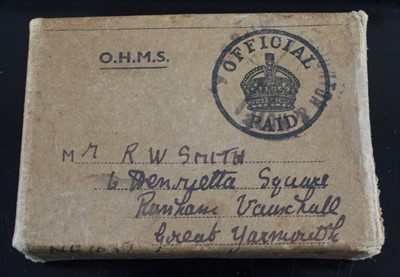 O.H.M.S.
OFFICIAL
PAID
Mr R W SMITH
6 Henrietta Square
Runham Vauxhall
Great Yarmouth